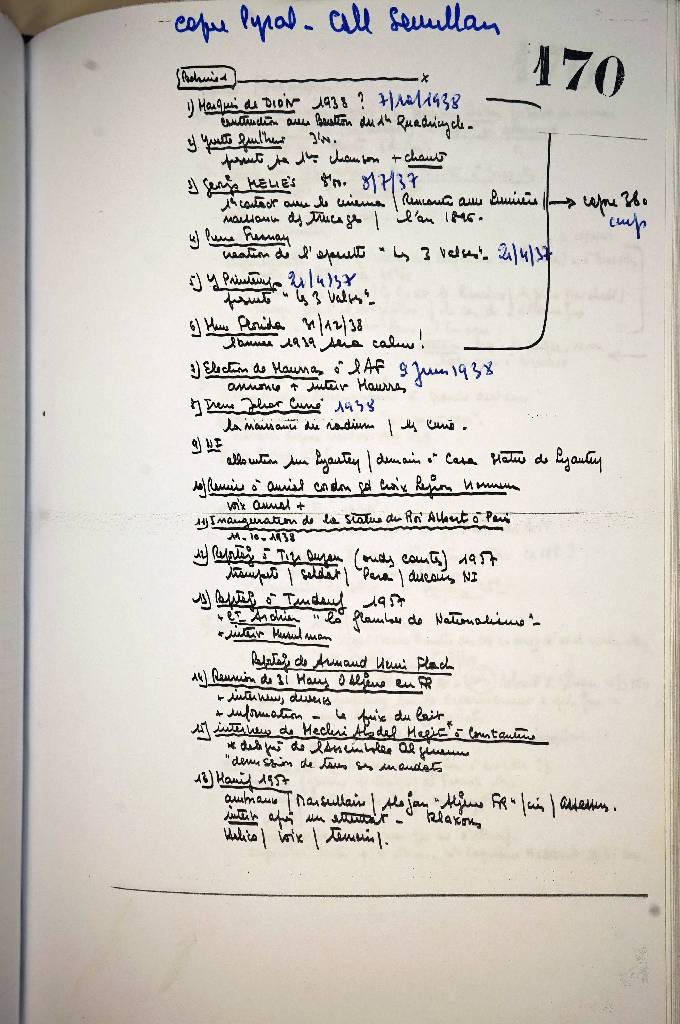 copie Pyral - Coll
170
1) Marquis de DION 1938 ? 7/10/1938
construction avec Bouton du 1er Quadricycle.
2) Yvette Guilbert
présente sa 1ère chanson + chante
3) Georges MELIES 8/7/37
1er contact avec le cinéma / Rencontre avec Lumière
naissance des trucages / l'an 1896.
→ copie 38
4) Pierre Fresnay
création de l'opérette "Les 3 Valses". 21/4/37
5) Y Printemps 21/4/37
présente "Les 3 Valses"
6) Mme Florida 31/12/38
l'année 1939 sera calme !
7) Election de Maurras à l'AF 9 Juin 1938
annonce + interv Maurras
8) Irène Joliot Curié 1938
la naissance du radium / les Curie.
9) NI
allocution sur Lyautey / demain à Casa Statue de Lyautey
10) Remise à auriol cordon gd Croix Légion Honneur
voix auriol +
11) Inauguration de la Statue du Roi Albert à Paris
11-10-1938
12) Reportage à Tizi Ouzou (ondes courtes) 1957
trompette / Soldat / Para / discours NI
13) Reportage à Tindouf 1957
+ "la flambée de Nationalisme"
+ interv Musulman
Reportage de Armand Henri Flach
14) Réunion de 31 Maires d'Algérie en FR
+ interviews diverses
+ information - le prix du lait
15) interview de Mechri Abdel Megit* à Constantine
* délégué de l'Assemblée Algérienne
"démission de tous ses mandats
16) Manif 1957
ambiance / Marseillaise / slogan "Algérie FR" / cris / assassins.
interv après un attentat - Klaxons
Hélico / voix / témoins /.